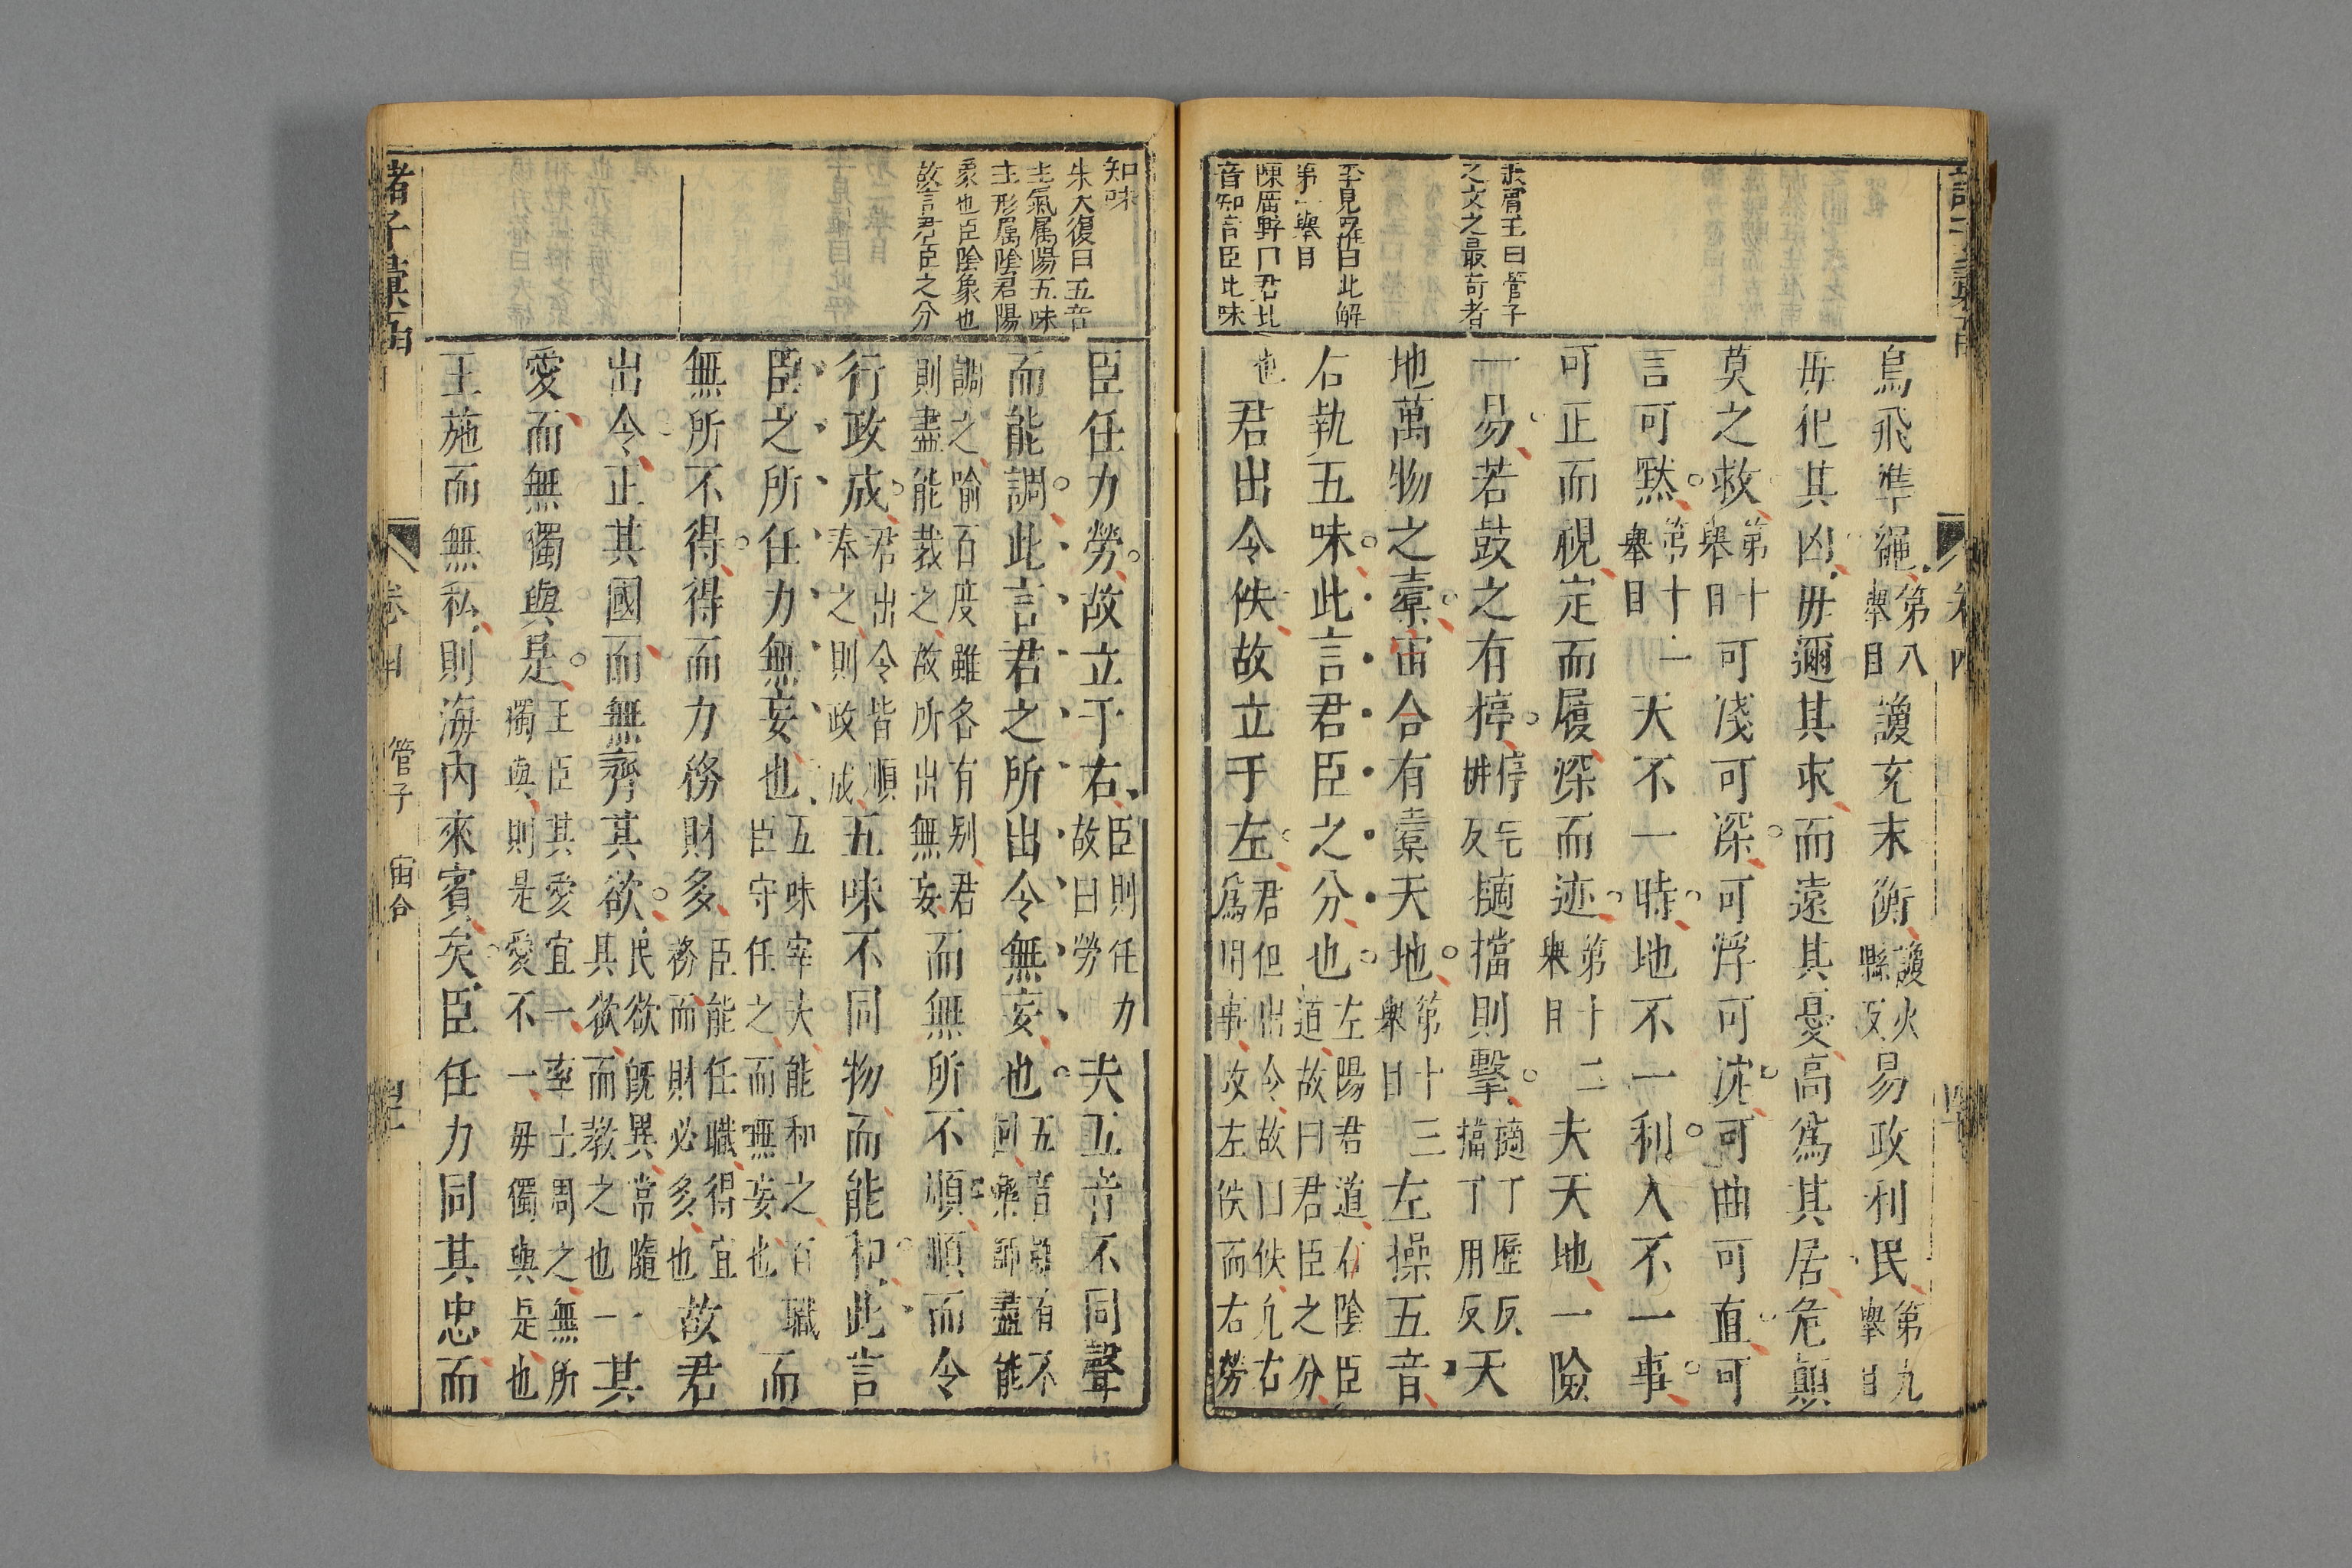 鳥飛準繩第八舉目 讂充末衡讂火縣反易政利民第九舉目
毋犯其凶毋邇其求而遠其憂高爲其居危顛
莫之救第十舉目可淺可深可浮可沈可曲可直可
言可默第十一舉目天不一時地不一利人不一事
可正而視定而履深而迹第十二舉目夫天地一險
一易若鼓之有桴擿擋則擊擿丁歷反擋丁用反天
地萬物之橐宙合有橐天地第十三舉目左操五音
右執五味此言君臣之分也左陽君道右陰臣道故曰君臣之分
也君出令佚故立于左君但出令故曰佚九右爲用事故左佚而右勞
張賓王曰管子
之文之最奇者
此解
第一舉目
陳廣野曰君比
音知言臣比味
臣任力勞故立于右臣則任力故曰勞夫五音不同聲
而能調此言君之所出令無妄也五音雖有不同樂師盡能
調之喻百度雖各有別君則盡能裁之故所出無妄而無所不順順而令
行政成君出令皆順奉之則政成五味不同物而能和此言
臣之所任力無妄也五味宰夫能和之百職臣守任之而無妄也而
無所不得得而力務財多臣能任職得宜務而財必多也故君
出令正其國而無齊其欲民欲既異常隨其欲而教之也一一其
愛而無獨與是王臣其愛宜一率土周之無所獨與則是愛不一毋獨與是也
王施而無私則海內來賓矣臣任力同其忠而
知味
朱大復曰五音
主氣屬陽五味
主形屬陰君陽
象也臣陰象也
故言君臣之分
諸子彙函
管子 宙合